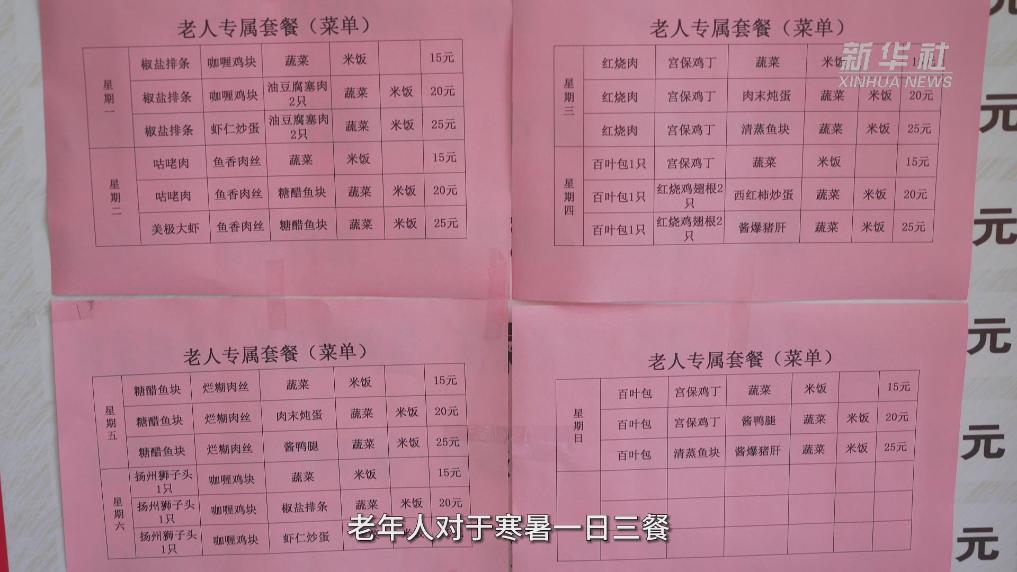 老人专属套餐（菜单）
星期一
椒盐排条 咖喱鸡块 蔬菜 米饭 15元
椒盐排条 咖喱鸡块 油豆腐塞肉2只 蔬菜 米饭 20元
椒盐排条 虾仁炒蛋 油豆腐塞肉2只 蔬菜 米饭 25元
星期二
咕咾肉 鱼香肉丝 蔬菜 米饭 15元
咕咾肉 鱼香肉丝 糖醋鱼块 蔬菜 米饭 20元
美极大虾 鱼香肉丝 糖醋鱼块 蔬菜 米饭 25元
老人专属套餐（菜单）
新华社
XINHUA NEWS
星期三
红烧肉 宫保鸡丁 蔬菜 米饭
红烧肉 宫保鸡丁 肉末炖蛋 蔬菜 米饭 20元
红烧肉 宫保鸡丁 清蒸鱼块 蔬菜 米饭 25元
星期四
百叶包1只 宫保鸡丁 蔬菜 米饭 15元
百叶包1只 红烧鸡翅根2只 西红柿炒蛋 蔬菜 米饭 20元
百叶包1只 红烧鸡翅根2只 酱爆猪肝 蔬菜 米饭 25元
老人专属套餐（菜单）
星期五
糖醋鱼块 烂糊肉丝 蔬菜 米饭 15元
糖醋鱼块 烂糊肉丝 肉末炖蛋 蔬菜 米饭 20元
糖醋鱼块 烂糊肉丝 酱鸭腿 蔬菜 米饭 25元
星期六
扬州狮子头1只 咖喱鸡块 蔬菜 米饭 15元
扬州狮子头1只 咖喱鸡块 椒盐排条 蔬菜 米饭 20元
扬州狮子头1只 咖喱鸡块 虾仁炒蛋
老人专属套餐（菜单）
星期日
百叶包 宫保鸡丁 蔬菜 米饭 15元
百叶包 宫保鸡丁 酱鸭腿 蔬菜 米饭 20元
百叶包 清蒸鱼块 酱爆猪肝 蔬菜 米饭 25元
元
元
元
元
元
元
老年人对于寒暑一日三餐